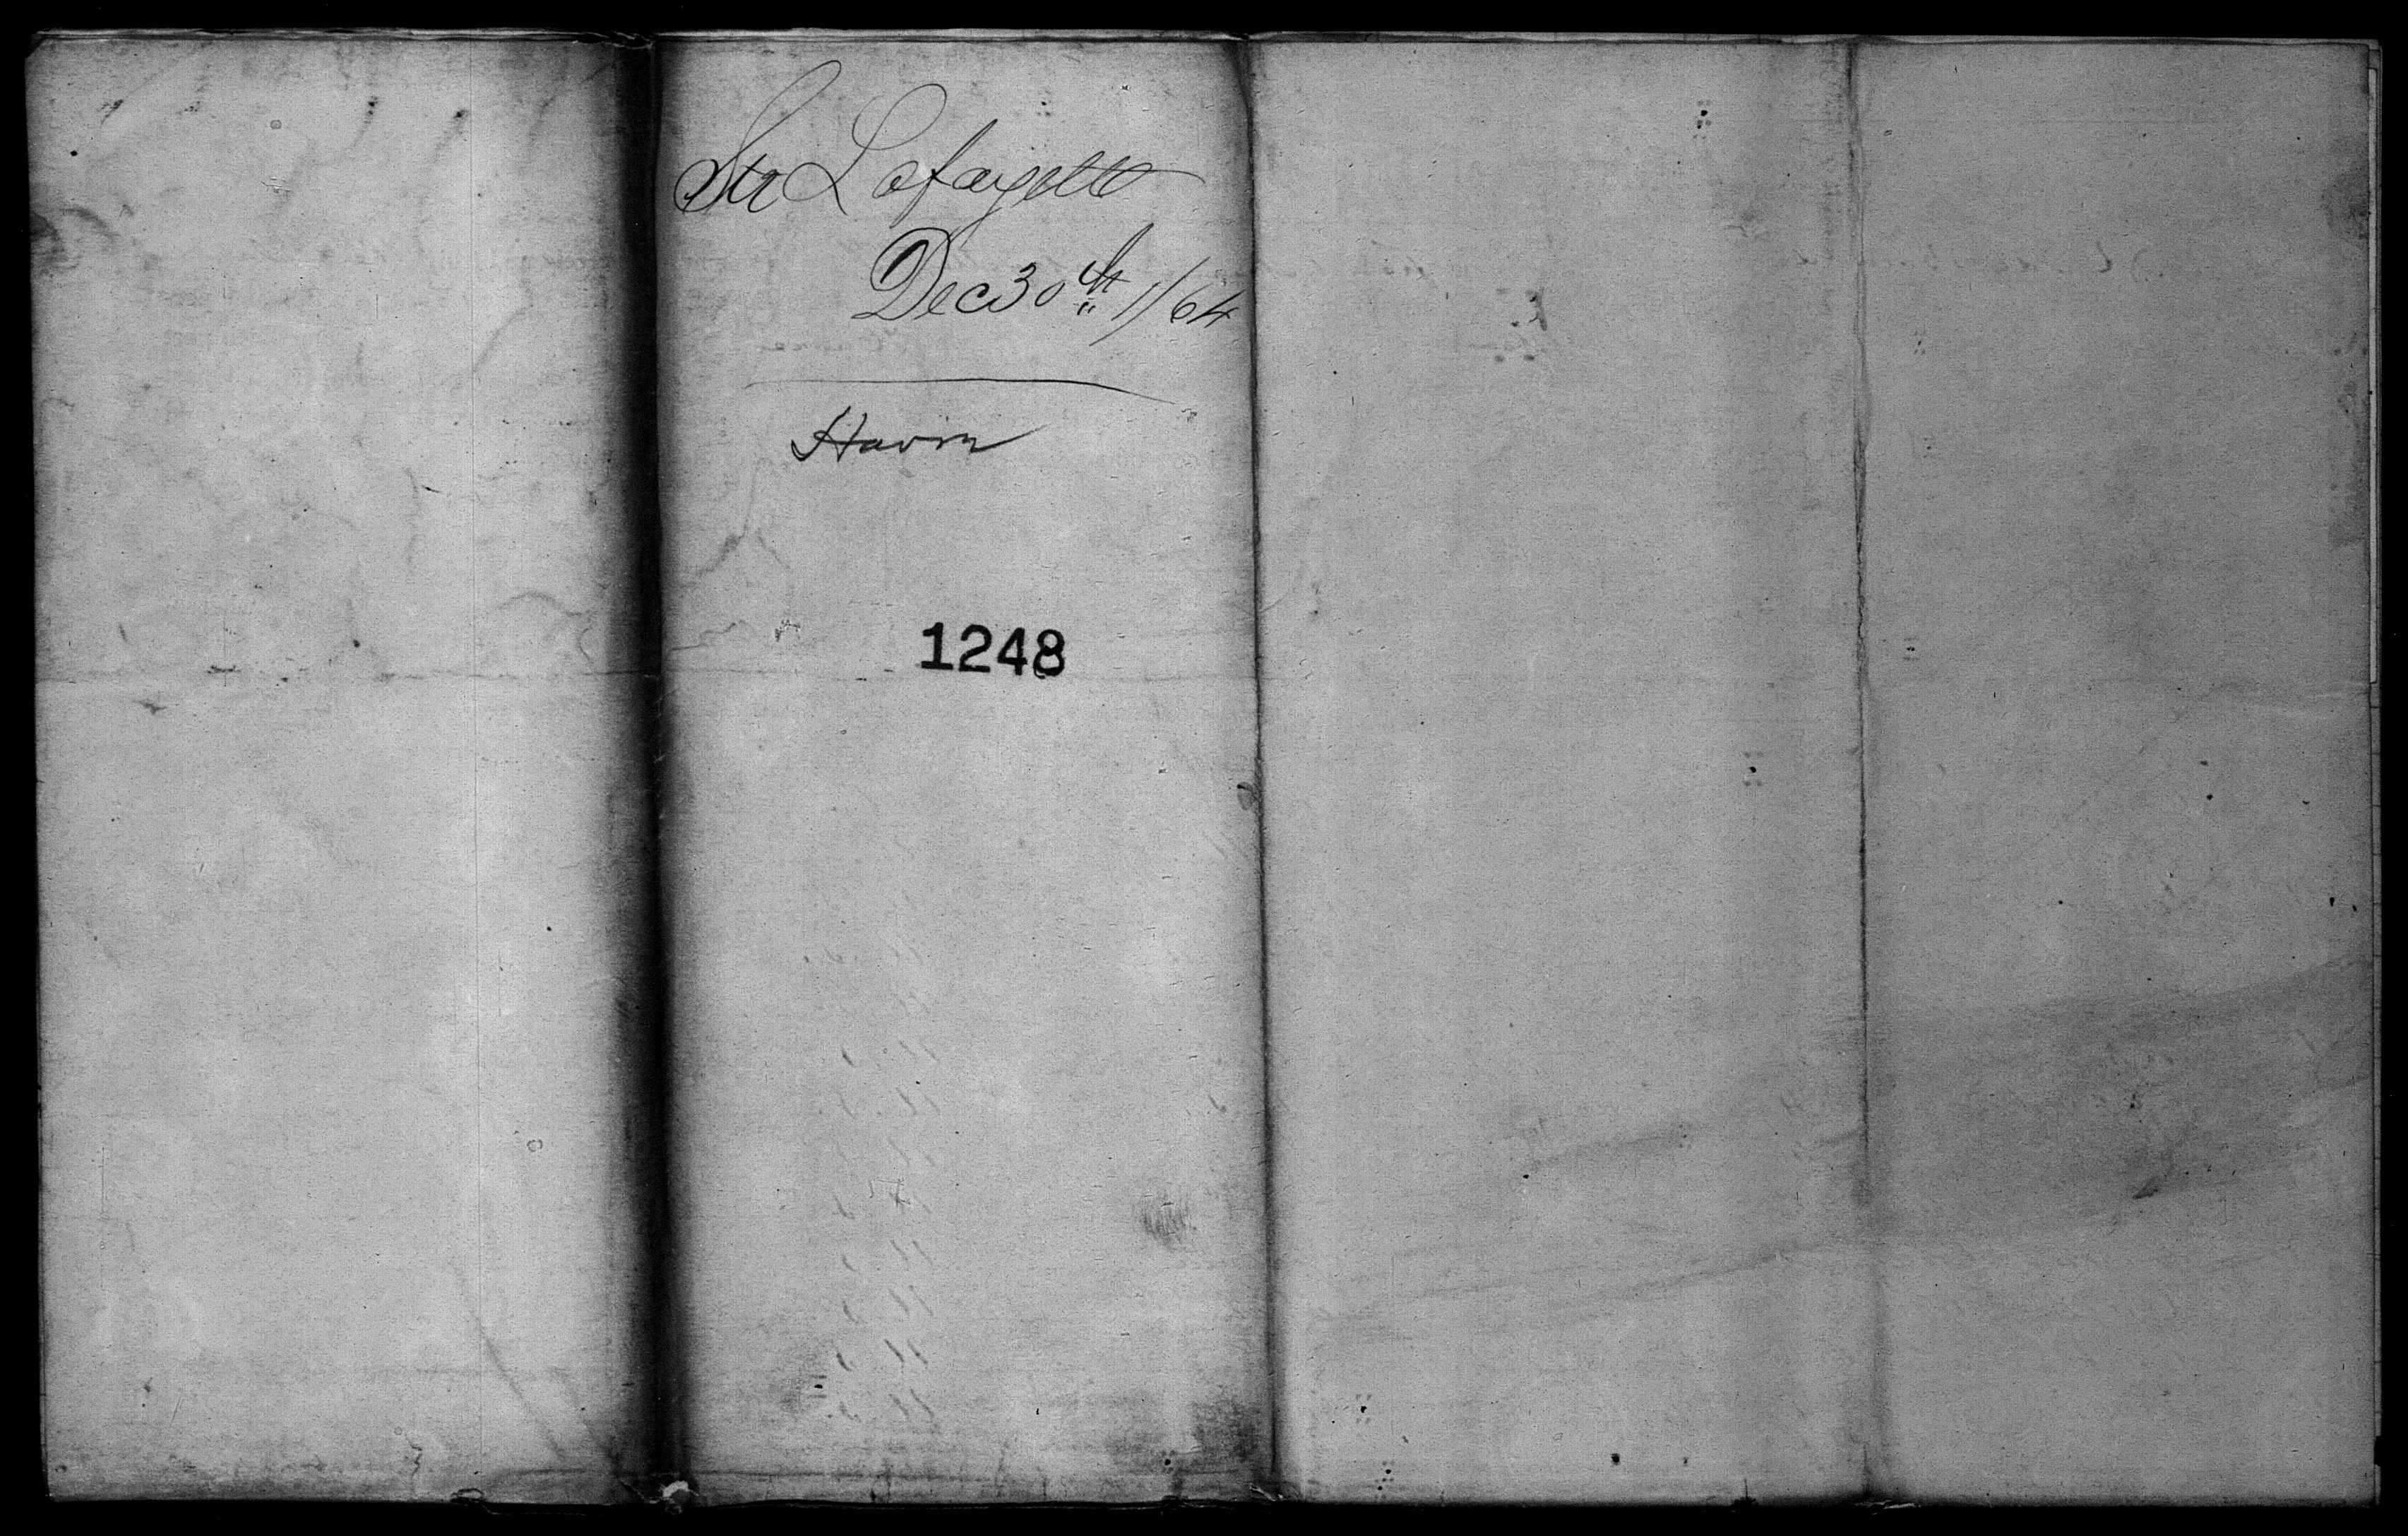 Str Lafayette
Dec 30th 1/64
Havin
1248